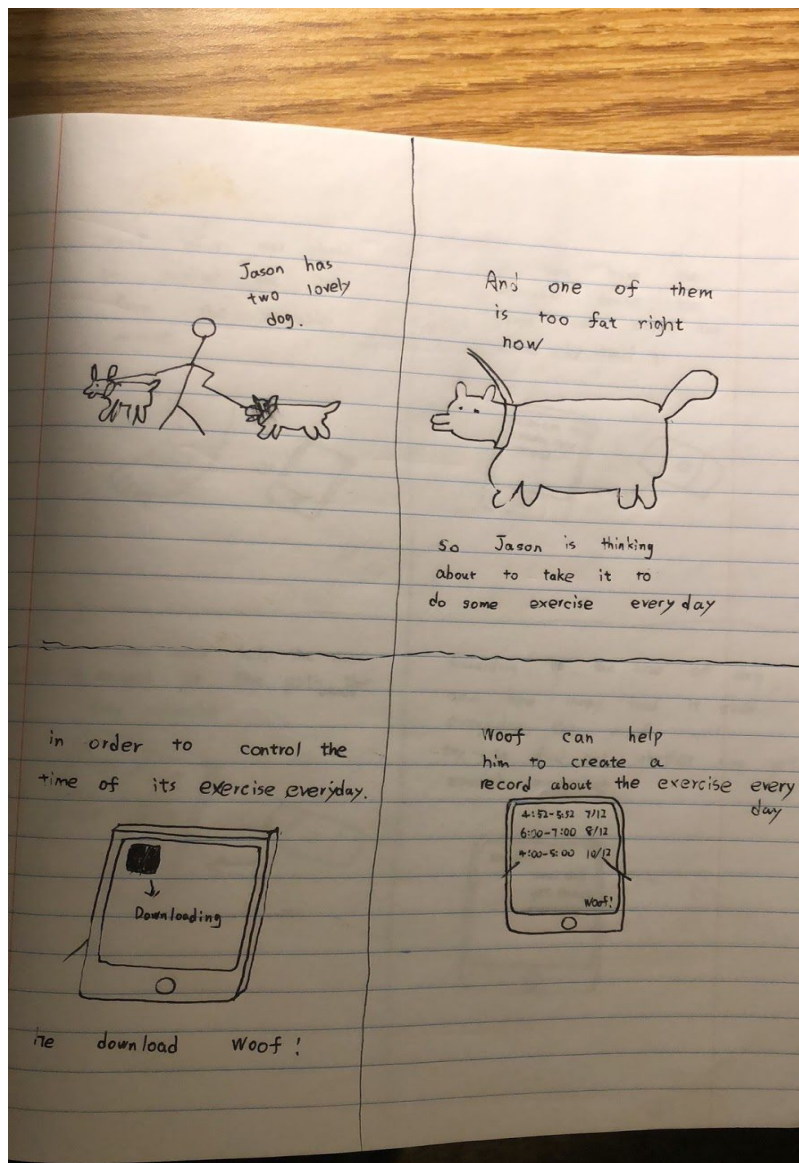 Jason has
two lovely
dog.
And one of them
is too fat right
now
So Jason is thinking
about to take it to
do some exercise every day
in order to control the
time of its exercise everyday.
Downloading
he download Woof!
Woof can help
him to create a
record about the exercise every
day
4:52-5:52 7/12
6:00-7:00 8/12
4:00-5:00 10/12
Woof!